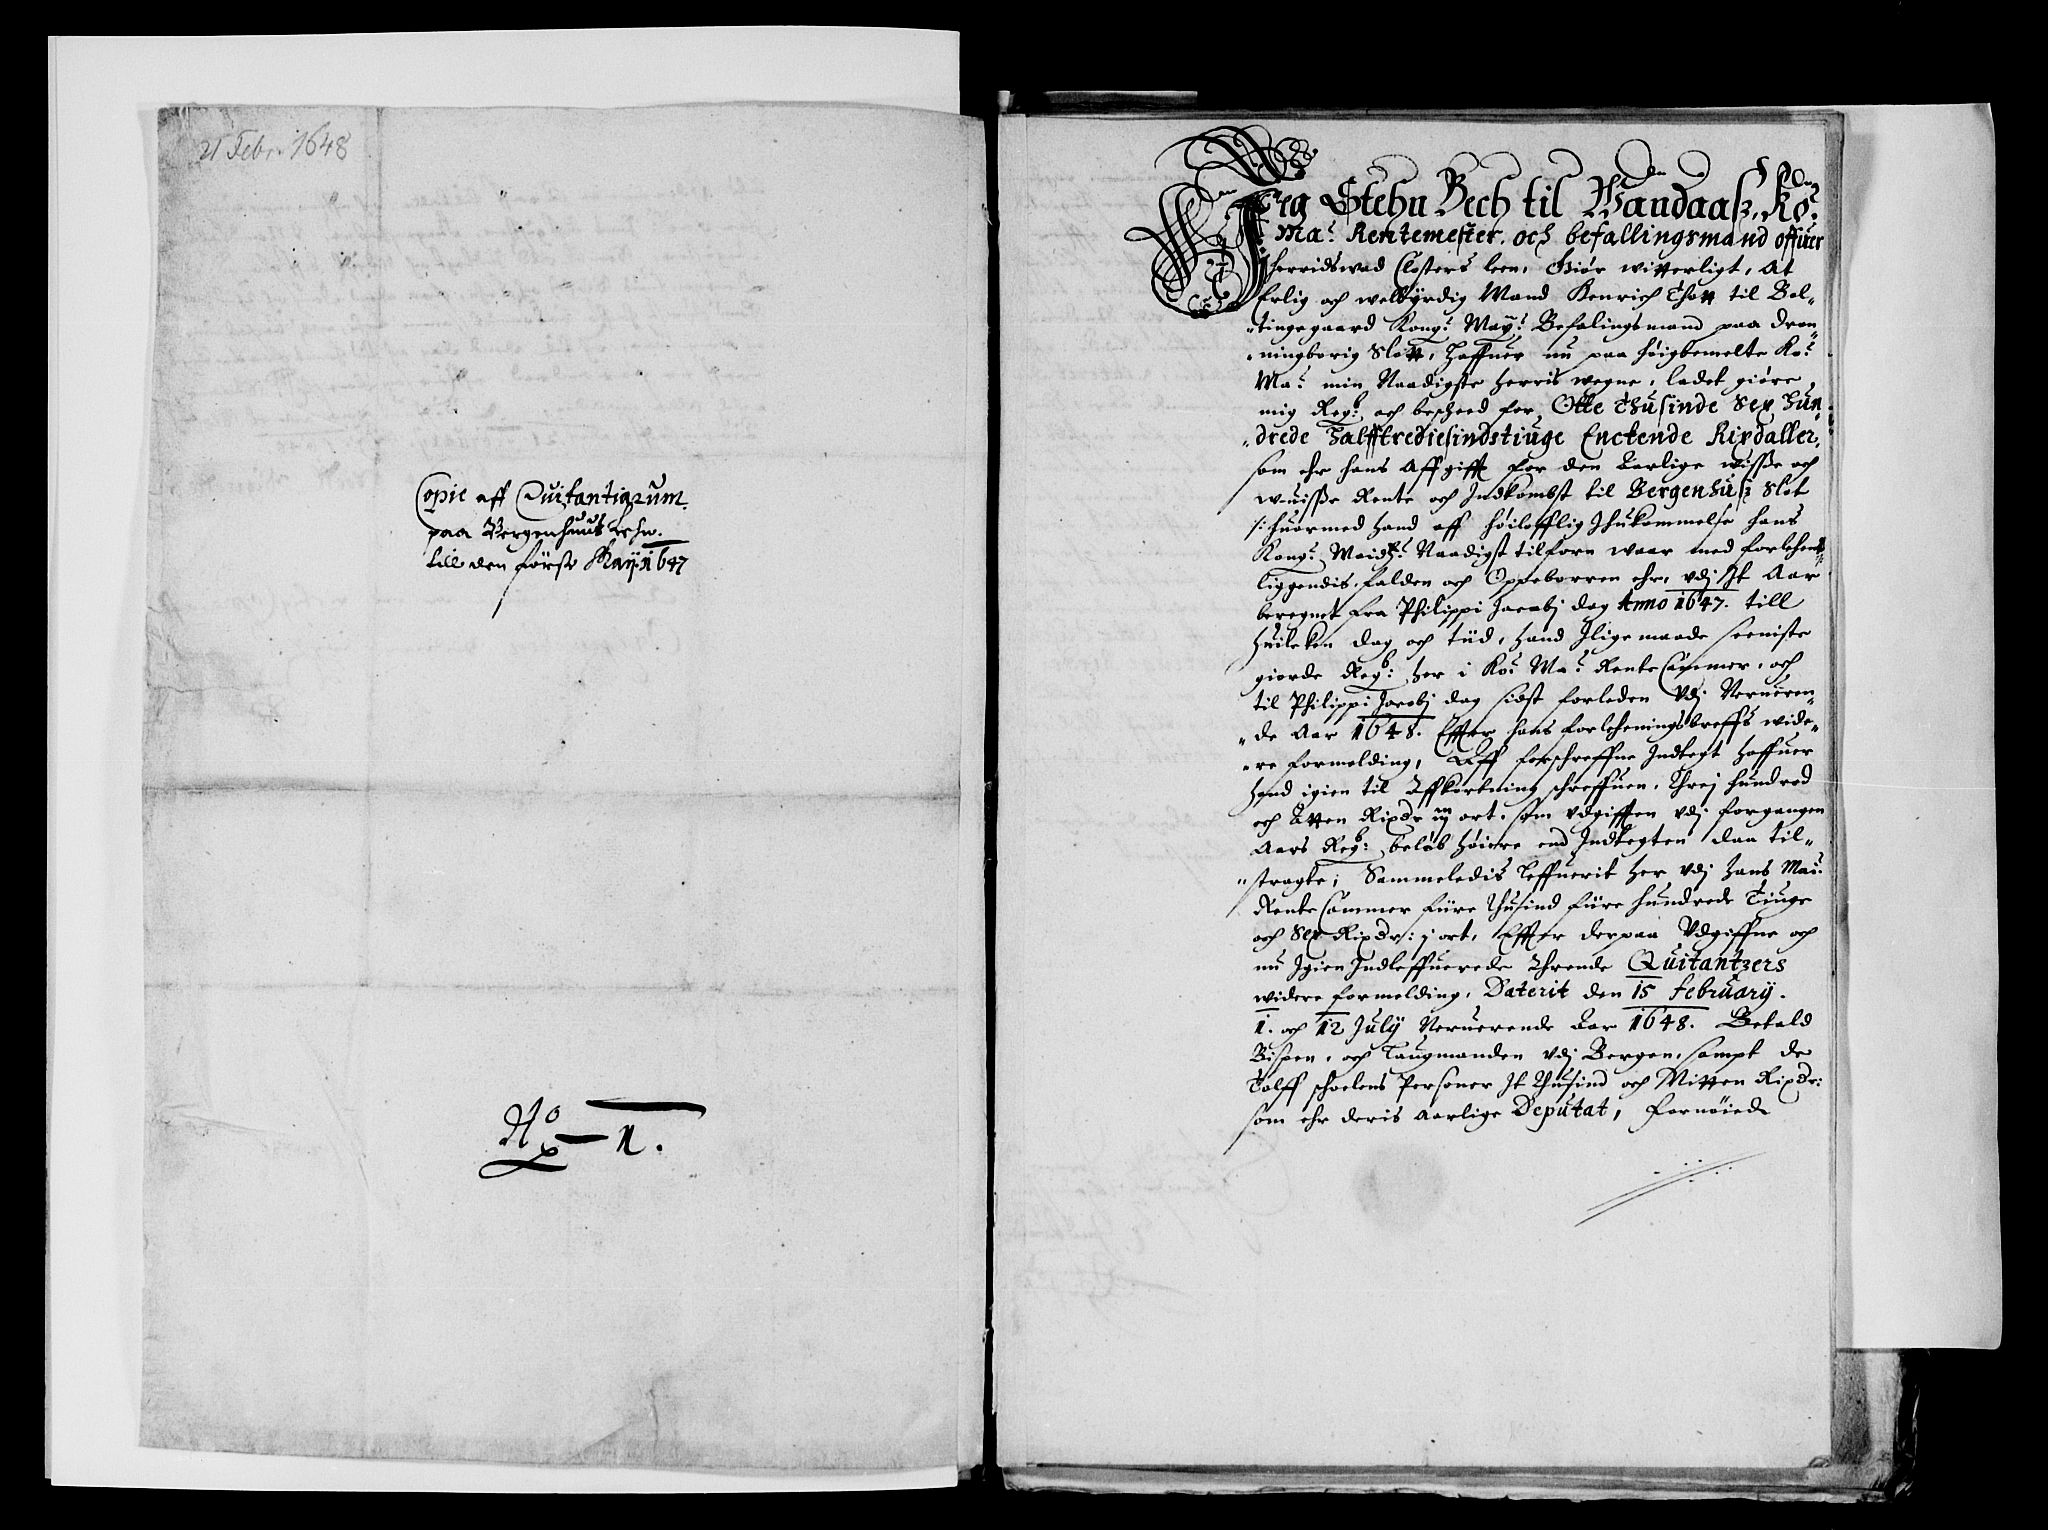 21 Febr. 1648
Copie aff Quitantiarum
paa Bergenhuus Lehn.
till den første Maij 1647
No 1.
Jeg Stehn Bech til Wandaasz, Ko:
Ma: Rentemester. och befallingsmand offuer
herridswad Closters leen, Giør witterligt, At
Erlig och welbyrdig Mand Henrich Thott til Bol-
-tinggaard Kong: May: Befalingsmand paa Dron-
-ningborig Slott, Haffuer nu paa høigbemelte Ko:
Ma: min Naadigste Herris wegne, ladet giøre
mig Regb: och bescheed for, Otte Thusinde Sex Hun-
-drede Halfftrediesindstiuge Enctende Rixdaller,
som ehr hans Affgifft for den Aarlige wisße och
wuisße Rente och Indkombst til Bergenhusz Slot
/: huormed hand aff høilofflig Ihukommelse hans
Kong: Maidtz: Naadigst tilforn waar med forlehent
liggendis, falden och Oppeborren ehr, vdj It Aar
beregnet fra Philippi Jacobj dag Anno 1647. till
huilcken dag och tiid, hand Jlige maade seeniste
giorde Regb: her i Ko: Ma: Rente Cammer, och
til Philippi Jacobj dag sidst forleden Vdj Neruéren-
-de Aar 1648. Effter hans forleheningsbreffs wide-
-re formelding, Aff forschreffne Indtegt haffuer
hand igien til Affkortning schreffuen, Threj hundred
och Atten Rixdr iij ort. som vdgifften vdj forgangen
Aars Regb: beløb høiere end Indtegten daa til-
-stragte; Sammeledis Leffuerit her vdj hans Mai:
Rente Cammer fiire thusind fiire hundrede Tiuge
och Sex Rixdr: j ort, Effter derpaa Vdgiffne och
nu Igien Indleffuerede Thrende Quitantzers
widere formelding, Daterit den 15 february.
1. och 12 July Neruerende Aar 1648. Betald
Bispen, och Laugmanden vdj Bergen, sampt de
Tolff schoelens Personer It Thusind och Nitten Rixdr:
som ehr deris Aarlige Deputat, fornøiede